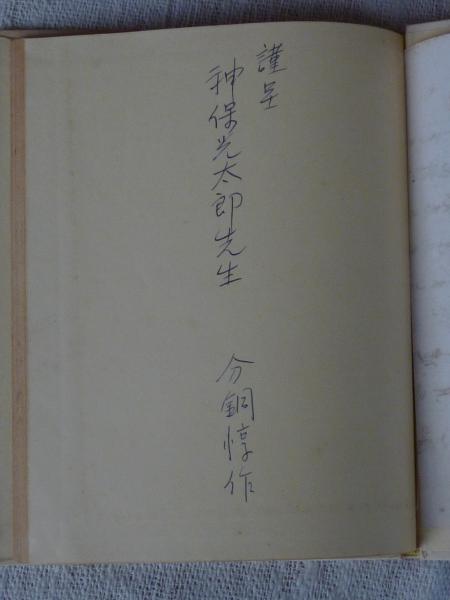 謹呈
神保光太郎先生
分銅惇作